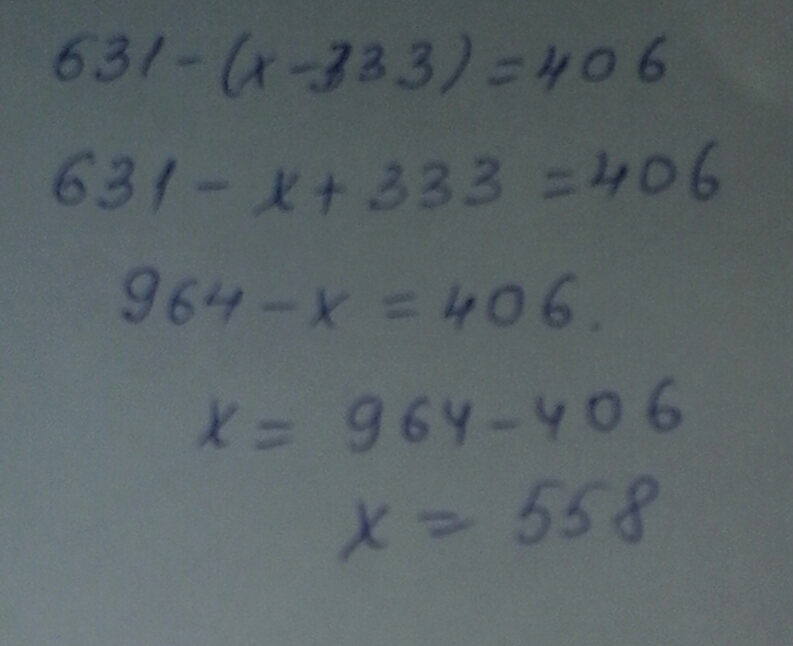 631-(x-333)=406
631-x+333=406
964-x=406.
x=964-406
x=558